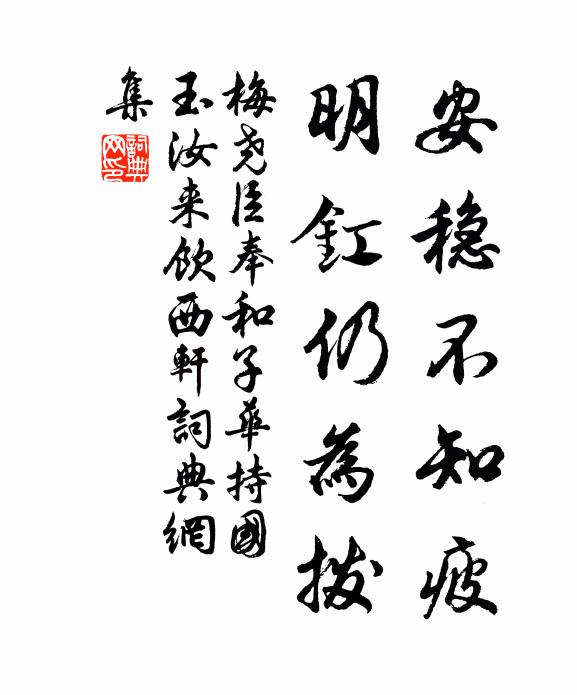 安穏不知疲
明釭仍為拨
梅尧臣奉和子華持國
玉汝来飲西軒詞典網
集
詞典
网印